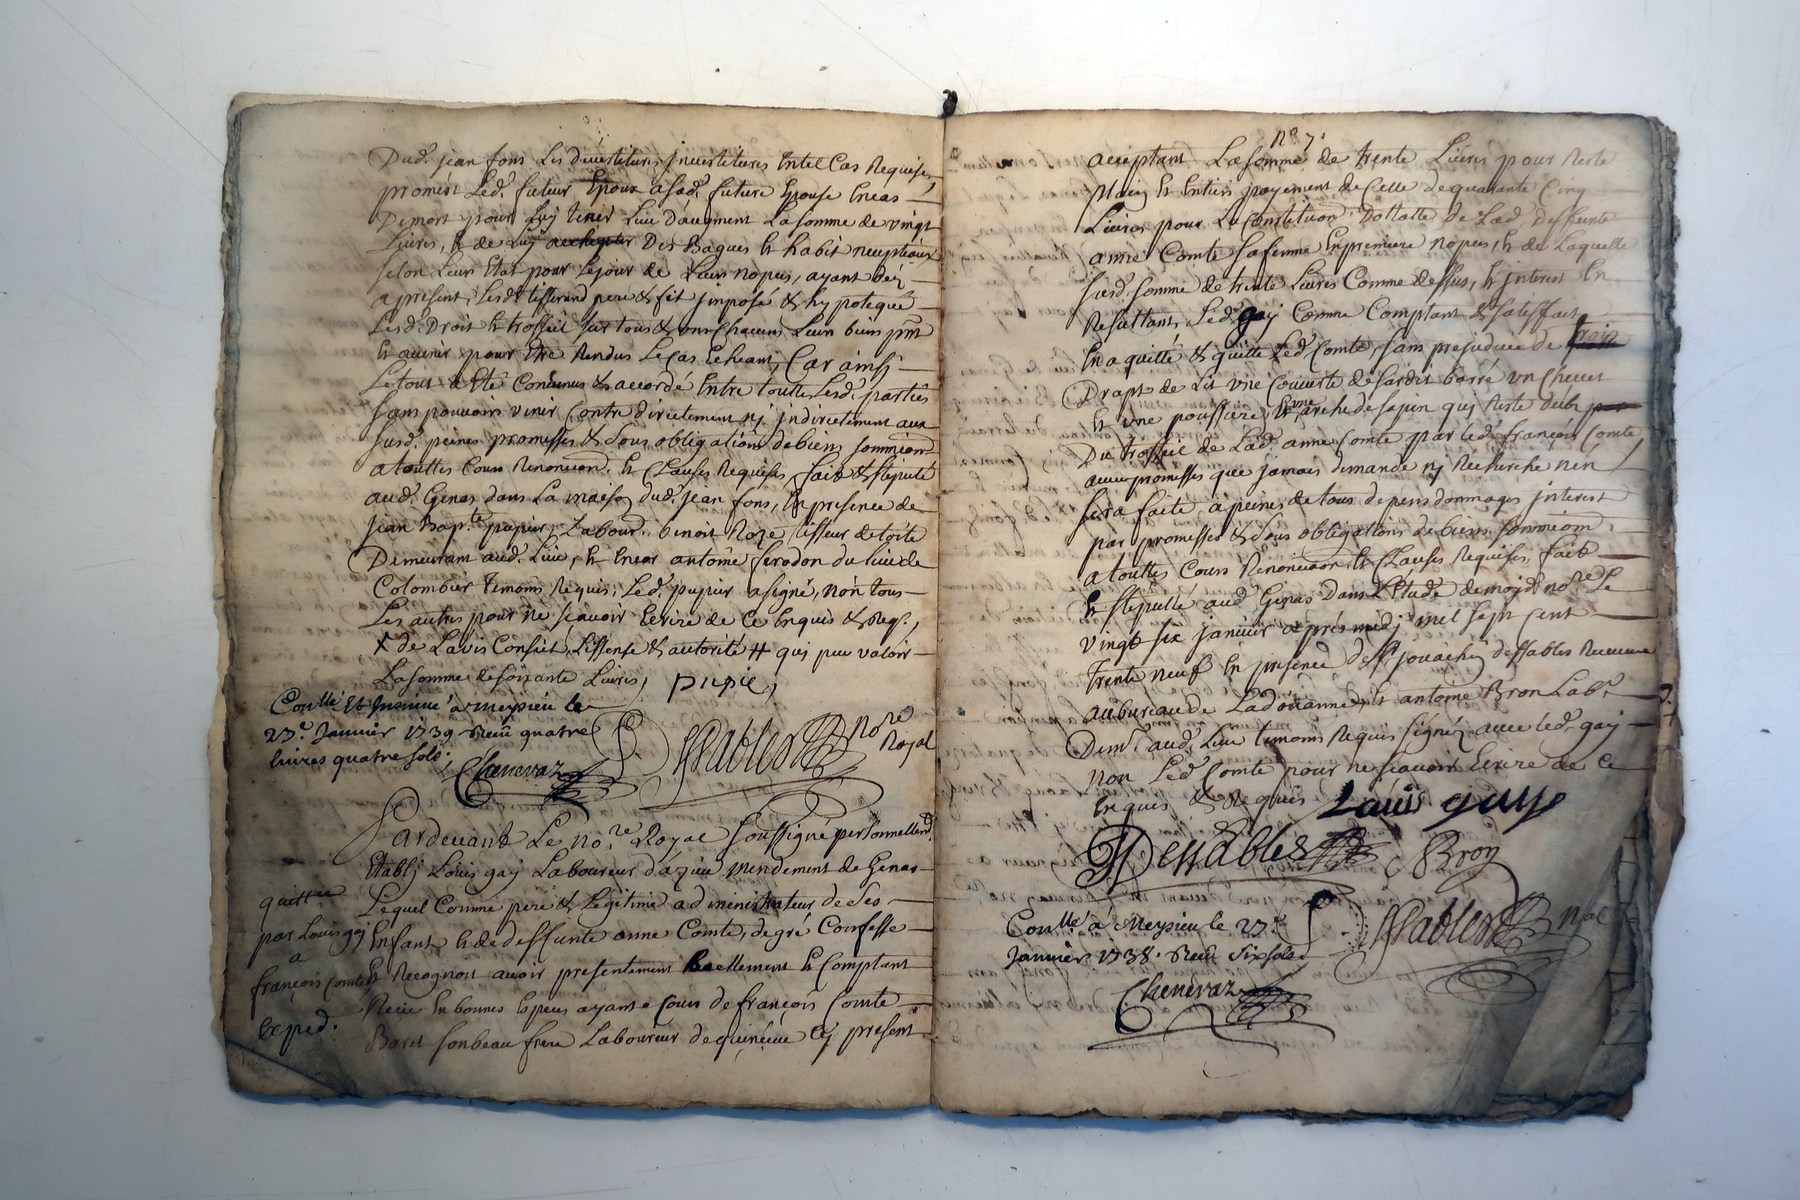 Dud. jean fons Les divestitures investitures Entel Cas Requises,
promest Led. futur Epoux a Sad. future Epouse En cas
Demort pour Luy tenir Lieu d'augment La somme de vingt
Livres, & de Luy achepter Des Bagues & habit neuptiaux
Selon Leur Etat pour Le jour de Leurs nopces, ayant dez
a présent, Lesd. tisserand pere & fils imposé & hypotequé
Lesd. Droit & trossel sur tous & un Chacuns Leurs biens pnt
& avenir pour Etre Rendus Le Cas Echeant, Car ainsi
Le tout a Eté Convenus & accordé Entre touttes Lesd. parties
Sans pouvoirs venir Contre directement nj indirectement aux
Susd. peines promesses & Sous obligations de biens
a touttes Cours Renonciaon. & Clauses Requises, fait & stipulé
aud. Genas dans La maison dud. jean fons, En presence de
jean Bapte. papier, Labour. benoit Roze tisseur de toile
Demeurant aud. Lieu, & antoine ferodon du Lieu de
Colombier temoins Requis, Led. papier a signé, non tous
Les autres pour ne sçavoir Ecrire de Ce Enquis & Req.,
X de Lavis Conseil, Lissense & autorité # qui peu valoir
La somme de soixante Livres,
Conllé Et Insinué a meyzieu le
27e. Janvier 1739 Receu quatre
livres quatre sols,
Chenevaz
Dessables Nore Royal
Pardevant Le nore. Royal soussigné personnellemt.
Etablj Louis gaj Laboureur d'azieu mendement de Genas
Lequel Comme pere & Legitime administrateur de Ses
Enfant & de deffunte anne Comte, de gré Confesse
& Recognoit avoir presentement Reellement & Comptant
Receu En bonnes Especes ayant Cours de françois Comte
Baret son beau frere Laboureur de Cy present
quittce
par Louis gaj
a
françois Comte
Exped.
No. 7.
acceptant La somme de trente Livres pour Reste
plain & Entier payement de Celle de quarante Cinq
Livres pour La Constitution Dottalle de Lad. deffunte
anne Comte sa femme En premiere nopces, & de Laquelle
susd. somme de trente Livres Comme dessus, & interest En
Resultant, Led. gaj Comme Comptant & satisffait
En a quitté & quitte Led. Comte, sans prejudice de
Draps de Lit une Couverte de sardit barré un Chevet
& une poussiere, & une arche de sapin quj Reste deub
Du trossel de Lad. anne Comte par Led. françois Comte,
avec promesses que jamais demande nj Recherche n'en
sera faite, a peines de tous depens dommages interest
par promesses & Sous obligations de biens
a touttes Cours Renonciaon & Clauses Requises, fait
& stipullé aud. Genas Dans L'Etude de mojd. nore Le
vingt six janvier apres midj mil sept cent
Trente neuf En presence de sr. jouachin dessables Receveur
au bureau de La doüanne, & antoine Bron Labr.
Demt. aud. Lieu temoins Requis signéz avec Led. gaj
non Led. Comte pour ne sçavoir Ecrire de Ce
Enquis & Requis Louis gay
Dessables Bron
Conllé a Meyzieu le 27e.
Janvier 1738. Receu six sols
Dessables
Chenevaz